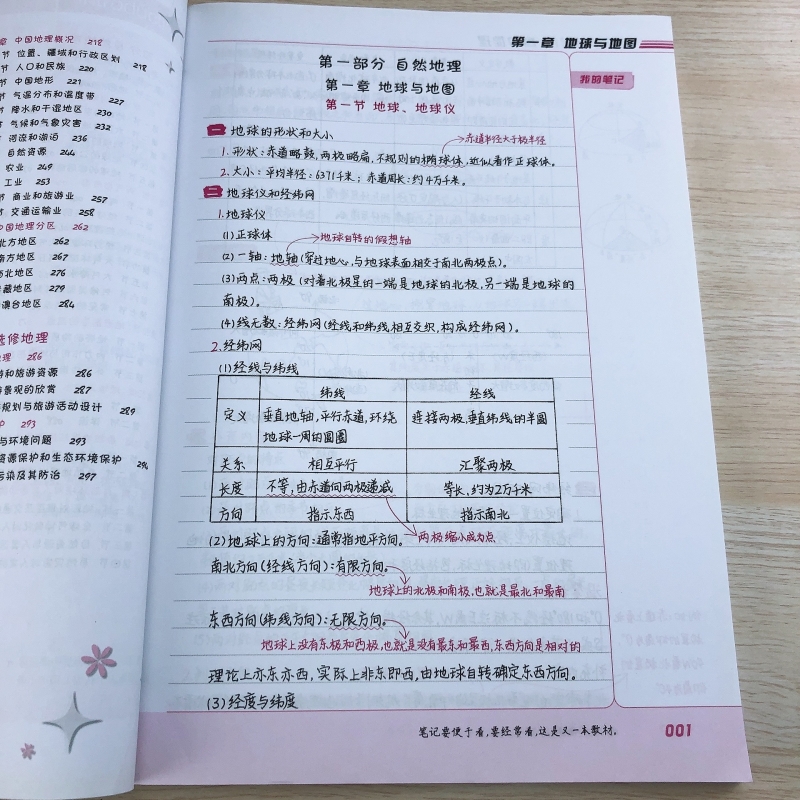 中国地理概况 218
节 位置、疆域和行政区划 218
节 人口和民族 220
节 中国地形 221
节 气温分布和温度带 227
节 降水和干湿地区 230
节 气候和气象灾害 232
节 河流和湖泊 236
自然资源 244
农业 249
工业 253
节 商业和旅游业 257
节 交通运输业 258
中国地理分区 262
北方地区 262
南方地区 267
西北地区 276
青藏地区 279
港澳台地区 284
选修地理
地理 286
游和旅游资源 286
游景观的欣赏 287
规划与旅游活动设计 289
护 293
与环境问题 293
资源保护和生态环境保护 296
污染及其防治 297
第一章 地球与地图
我的笔记
第一部分 自然地理
第一章 地球与地图
第一节 地球、地球仪
一 地球的形状和大小
赤道半径大于极半径
1.形状:赤道略鼓,两极略扁,不规则的椭球体,近似看作正球体。
2.大小:平均半径:6371千米;赤道周长:约4万千米。
二 地球仪和经纬网
1.地球仪
(1)正球体
地球自转的假想轴
(2)一轴:地轴(穿过地心,与地球表面相交于南北两极点)。
(3)两点:两极(对着北极星的一端是地球的北极,另一端是地球的
南极)。
(4)线无数:经纬网(经线和纬线相互交织,构成经纬网)。
2.经纬网
(1)经线与纬线
纬线 经线
定义 垂直地轴,平行赤道,环绕 连接两极,垂直纬线的半圆
地球一周的圆圈
关系 相互平行 汇聚两极
长度 不等,由赤道向两极递减 等长、约为2万千米
方向 指示东西 指示南北
(2)地球上的方向:通常指地平方向。 两极缩小成为点
南北方向(经线方向):有限方向。
地球上的北极和南极,也就是最北和最南
东西方向(纬线方向):无限方向。
地球上没有东极和西极,也就是没有最东和最西,东西方向是相对的
理论上亦东亦西,实际上非东即西,由地球自转确定东西方向。
(3)经度与纬度
笔记要便于看,要经常看,这是又一本教材。
001